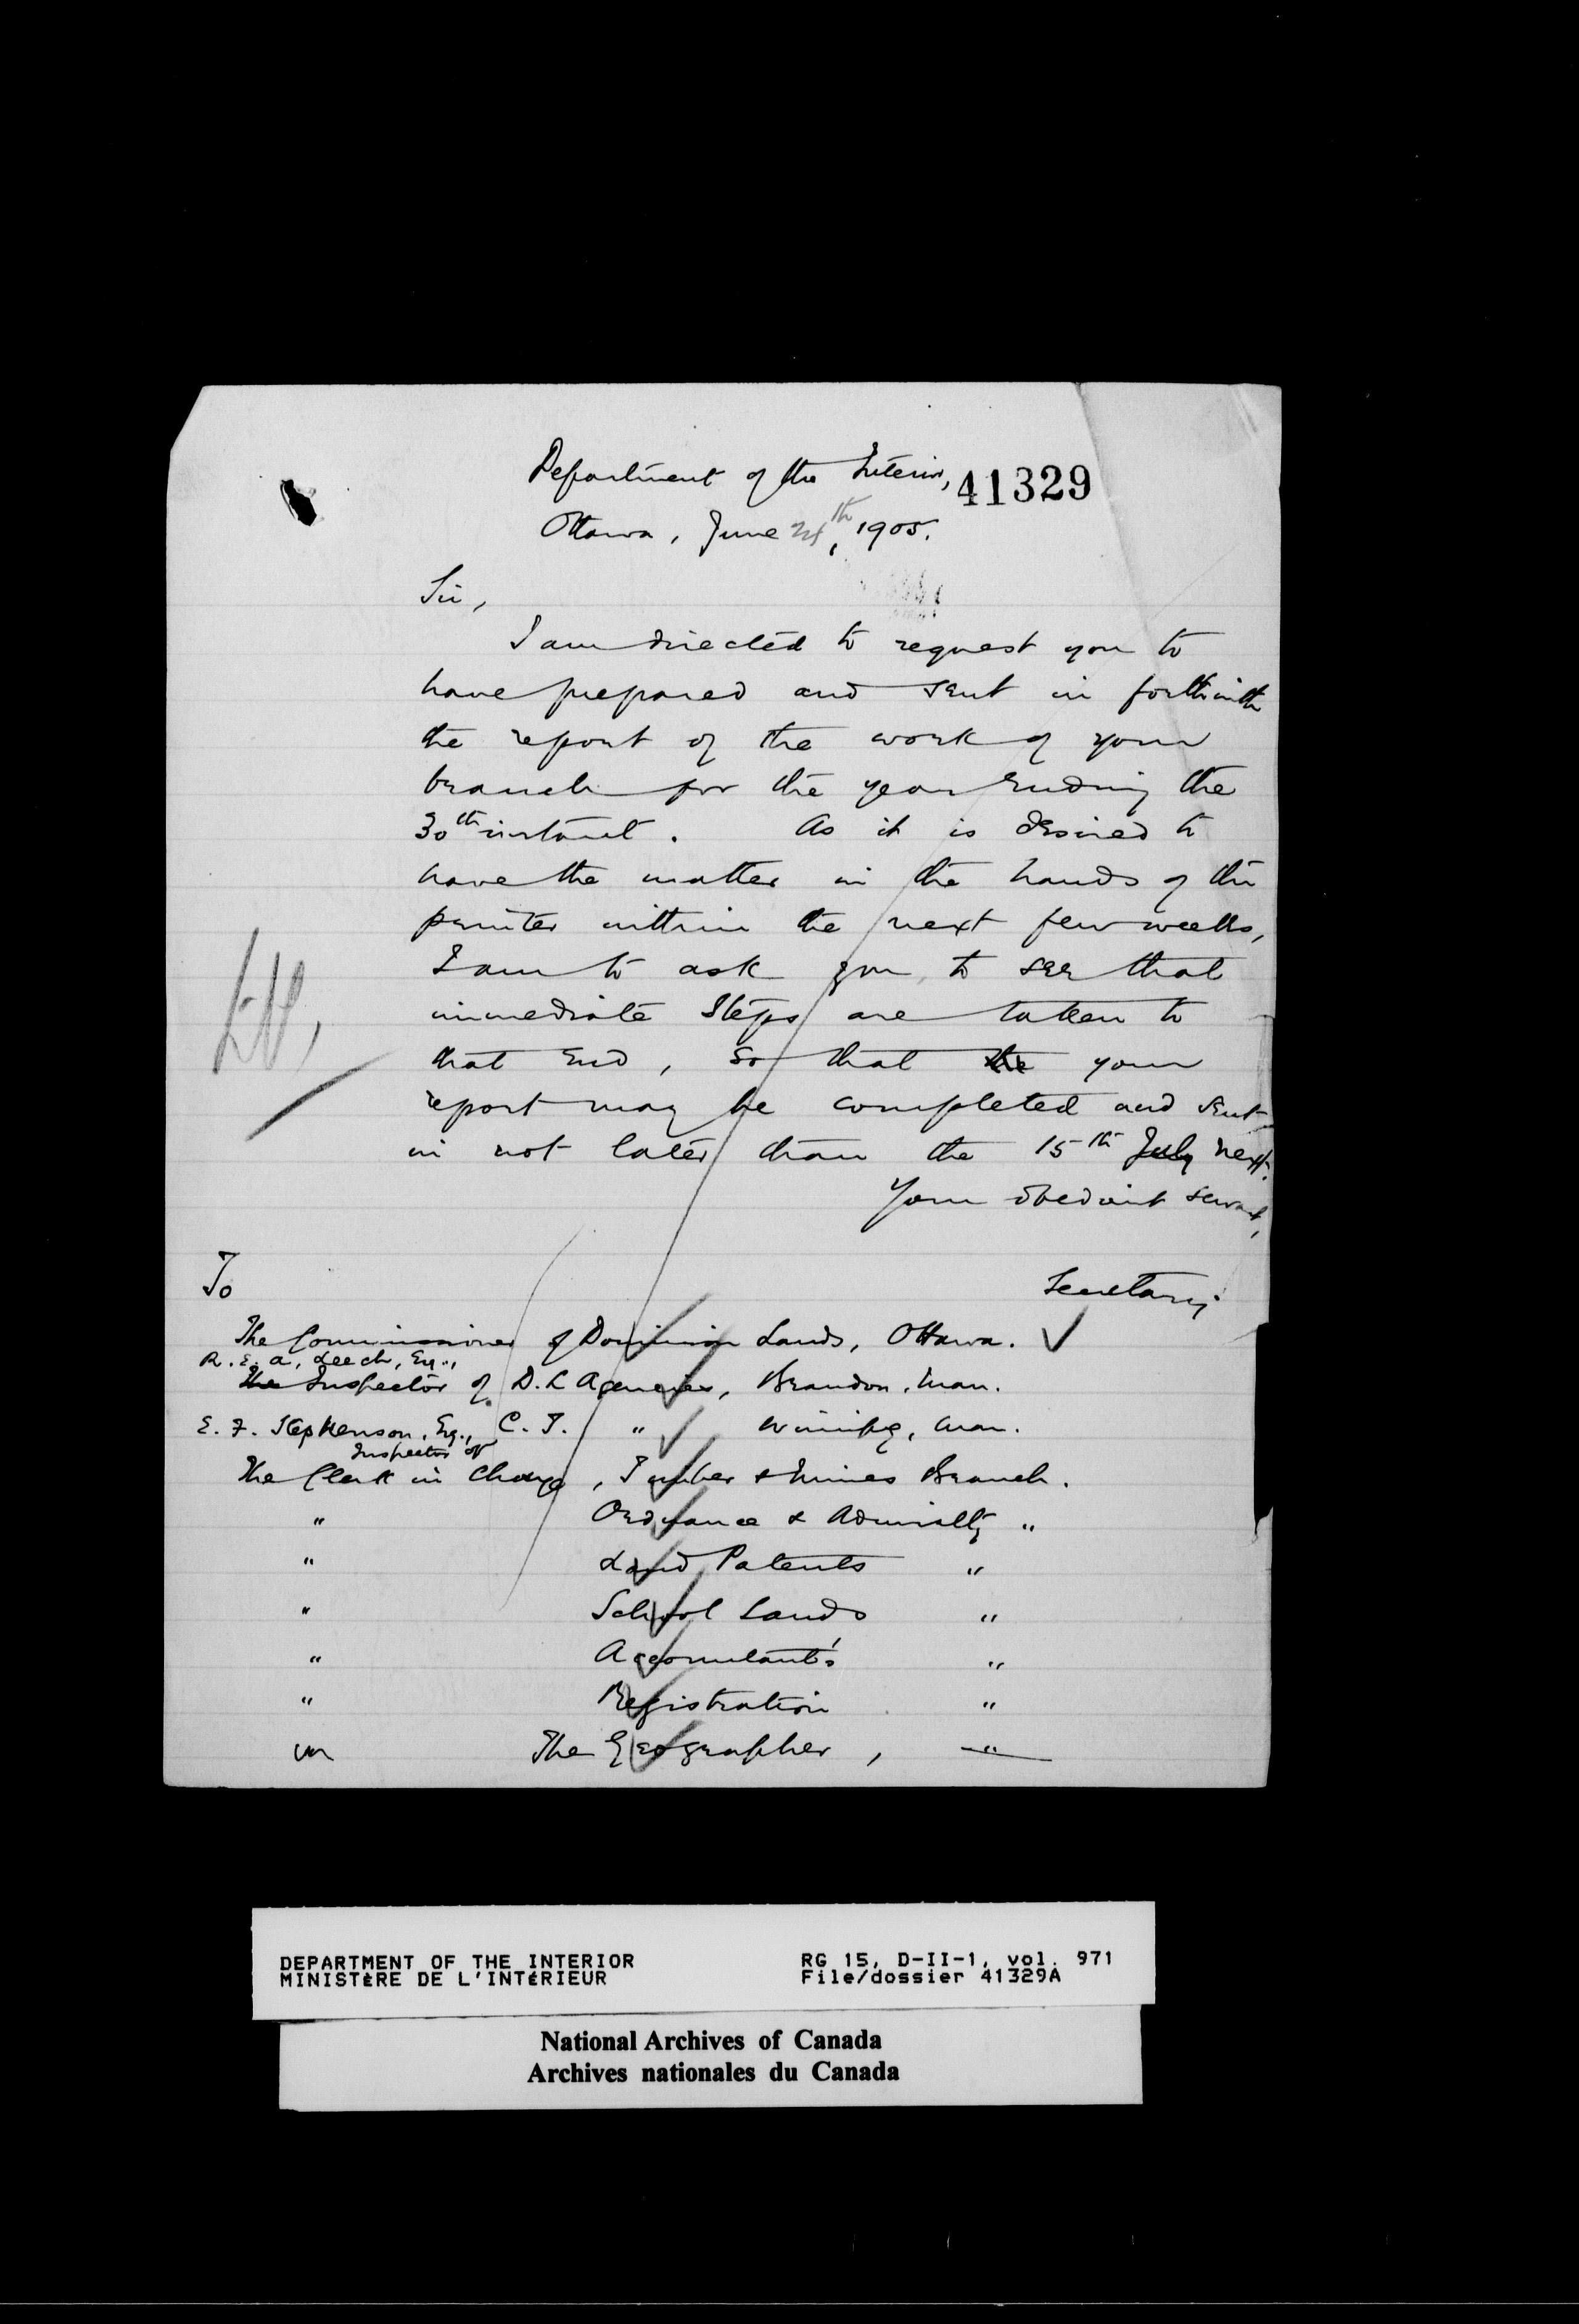 Department of the Interior, 41329
Ottawa, June th, 1905.
Sir,
I am directed to request you to
have prepared and sent in forthwith
the report of the work of your
branch for the year ending the
30th instant. As it is desired to
have the matter in the hands of the
printer within the next few weeks,
I am to ask you to see that
immediate steps are taken to
that end, so that the your
report may be completed and sent
in not later than the 15th July next.
Your obedient servant,
Secretary
To
The Commissioner of Dominion Lands, Ottawa.
R. E. A. Leech, Esq.,
The Inspector of D. L. Agencies, Brandon, Man.
E. F. Stephenson, Esq., C. T. " Winnipeg, Man.
Inspector of
The Clerk in Charge, Timber & Mines Branch.
" Ordnance & Admiralty "
" Land Patents "
" School Lands "
" Accountant's "
" Registration "
The Geographer, "
DEPARTMENT OF THE INTERIOR RG 15, D-II-1, vol. 971
MINISTÈRE DE L'INTÉRIEUR File/dossier 41329A
National Archives of Canada
Archives nationales du Canada